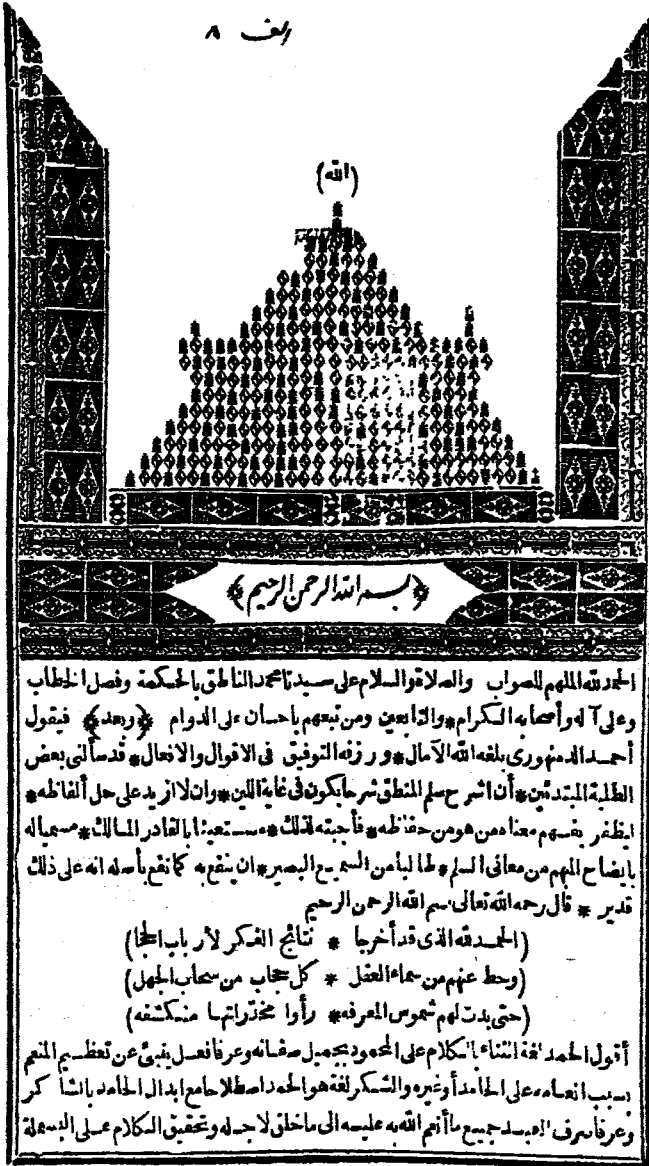 الف ٨
(الله)
﴿بسم الله الرحمن الرحيم﴾
الحمد لله الملهم للصواب والصلاة والسلام على سيدنا محمد الناطق بالحكمة وفصل الخطاب
وعلى آله وأصحابه الكرام * والتابعين ومن تبعهم باحسان على الدوام ﴿وبعد﴾ فيقول
أحمد الدمنهورى بلغه الله الآمال * ورزقه التوفيق فى الاقوال والافعال * قد سألنى بعض
الطلبة المبتدئين * أن اشرح سلم المنطق شرحا يكون فى غاية اللين * وان لا ازيد على حل ألفاظه *
ليظفر بفهم معناه من هو من حفاظه * فأجبته لذلك * مستعينا بالقادر المالك * مسمياله
بايضاح المبهم من معانى السلم * طالبا من السميع البصير * ان ينفع به كما نفع بأصله انه على ذلك
قدير * قال رحمه الله تعالى بسم الله الرحمن الرحيم
(الحمد لله الذى قد أخرجا * نتائج الفكر لأرباب الحجا)
(وحط عنهم من سماء العقل * كل حجاب من سحاب الجهل)
(حتى بدت لهم شموس المعرفه * رأوا مخدراتها منكشفه)
أقول الحمد لغة الثناء بالكلام على المحمود بجميل صفاته وعرفا فعل ينبئ عن تعظيم المنعم
بسبب انعامه على الحامد أو غيره والشكر لغة هو الحمد اصطلاحا مع ابدال الحامد بالشاكر
وعرفا صرف العبد جميع ما أنعم الله به عليه الى ما خلق لاجله وتحقيق الكلام على البسملة